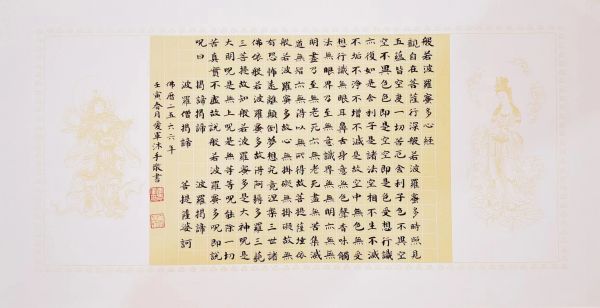 般若波羅蜜多心經
觀自在菩薩行深般若波羅蜜多時照見
五蘊皆空度一切苦厄舍利子色不異空
空不異色色即是空空即是色受想行識
亦復如是舍利子是諸法空相不生不滅
不垢不淨不增不減是故空中無色無受
想行識無眼耳鼻舌身意無色聲香味觸
法無眼界乃至無意識界無無明亦無無
明盡乃至無老死亦無老死盡無苦集滅
道無智亦無得以無所得故菩提薩埵依
般若波羅蜜多故心無掛礙無掛礙故無
有恐怖遠離顛倒夢想究竟涅槃三世諸
佛依般若波羅蜜多故得阿耨多羅三藐
三菩提故知般若波羅蜜多是大神呪是
大明呪是無上呪是無等等呪能除一切
苦真實不虛故說般若波羅蜜多呪即說
呪曰 揭諦揭諦 波羅揭諦
波羅僧揭諦 菩提薩婆訶
佛曆二五六六年
壬寅春月愛軍沐手敬書